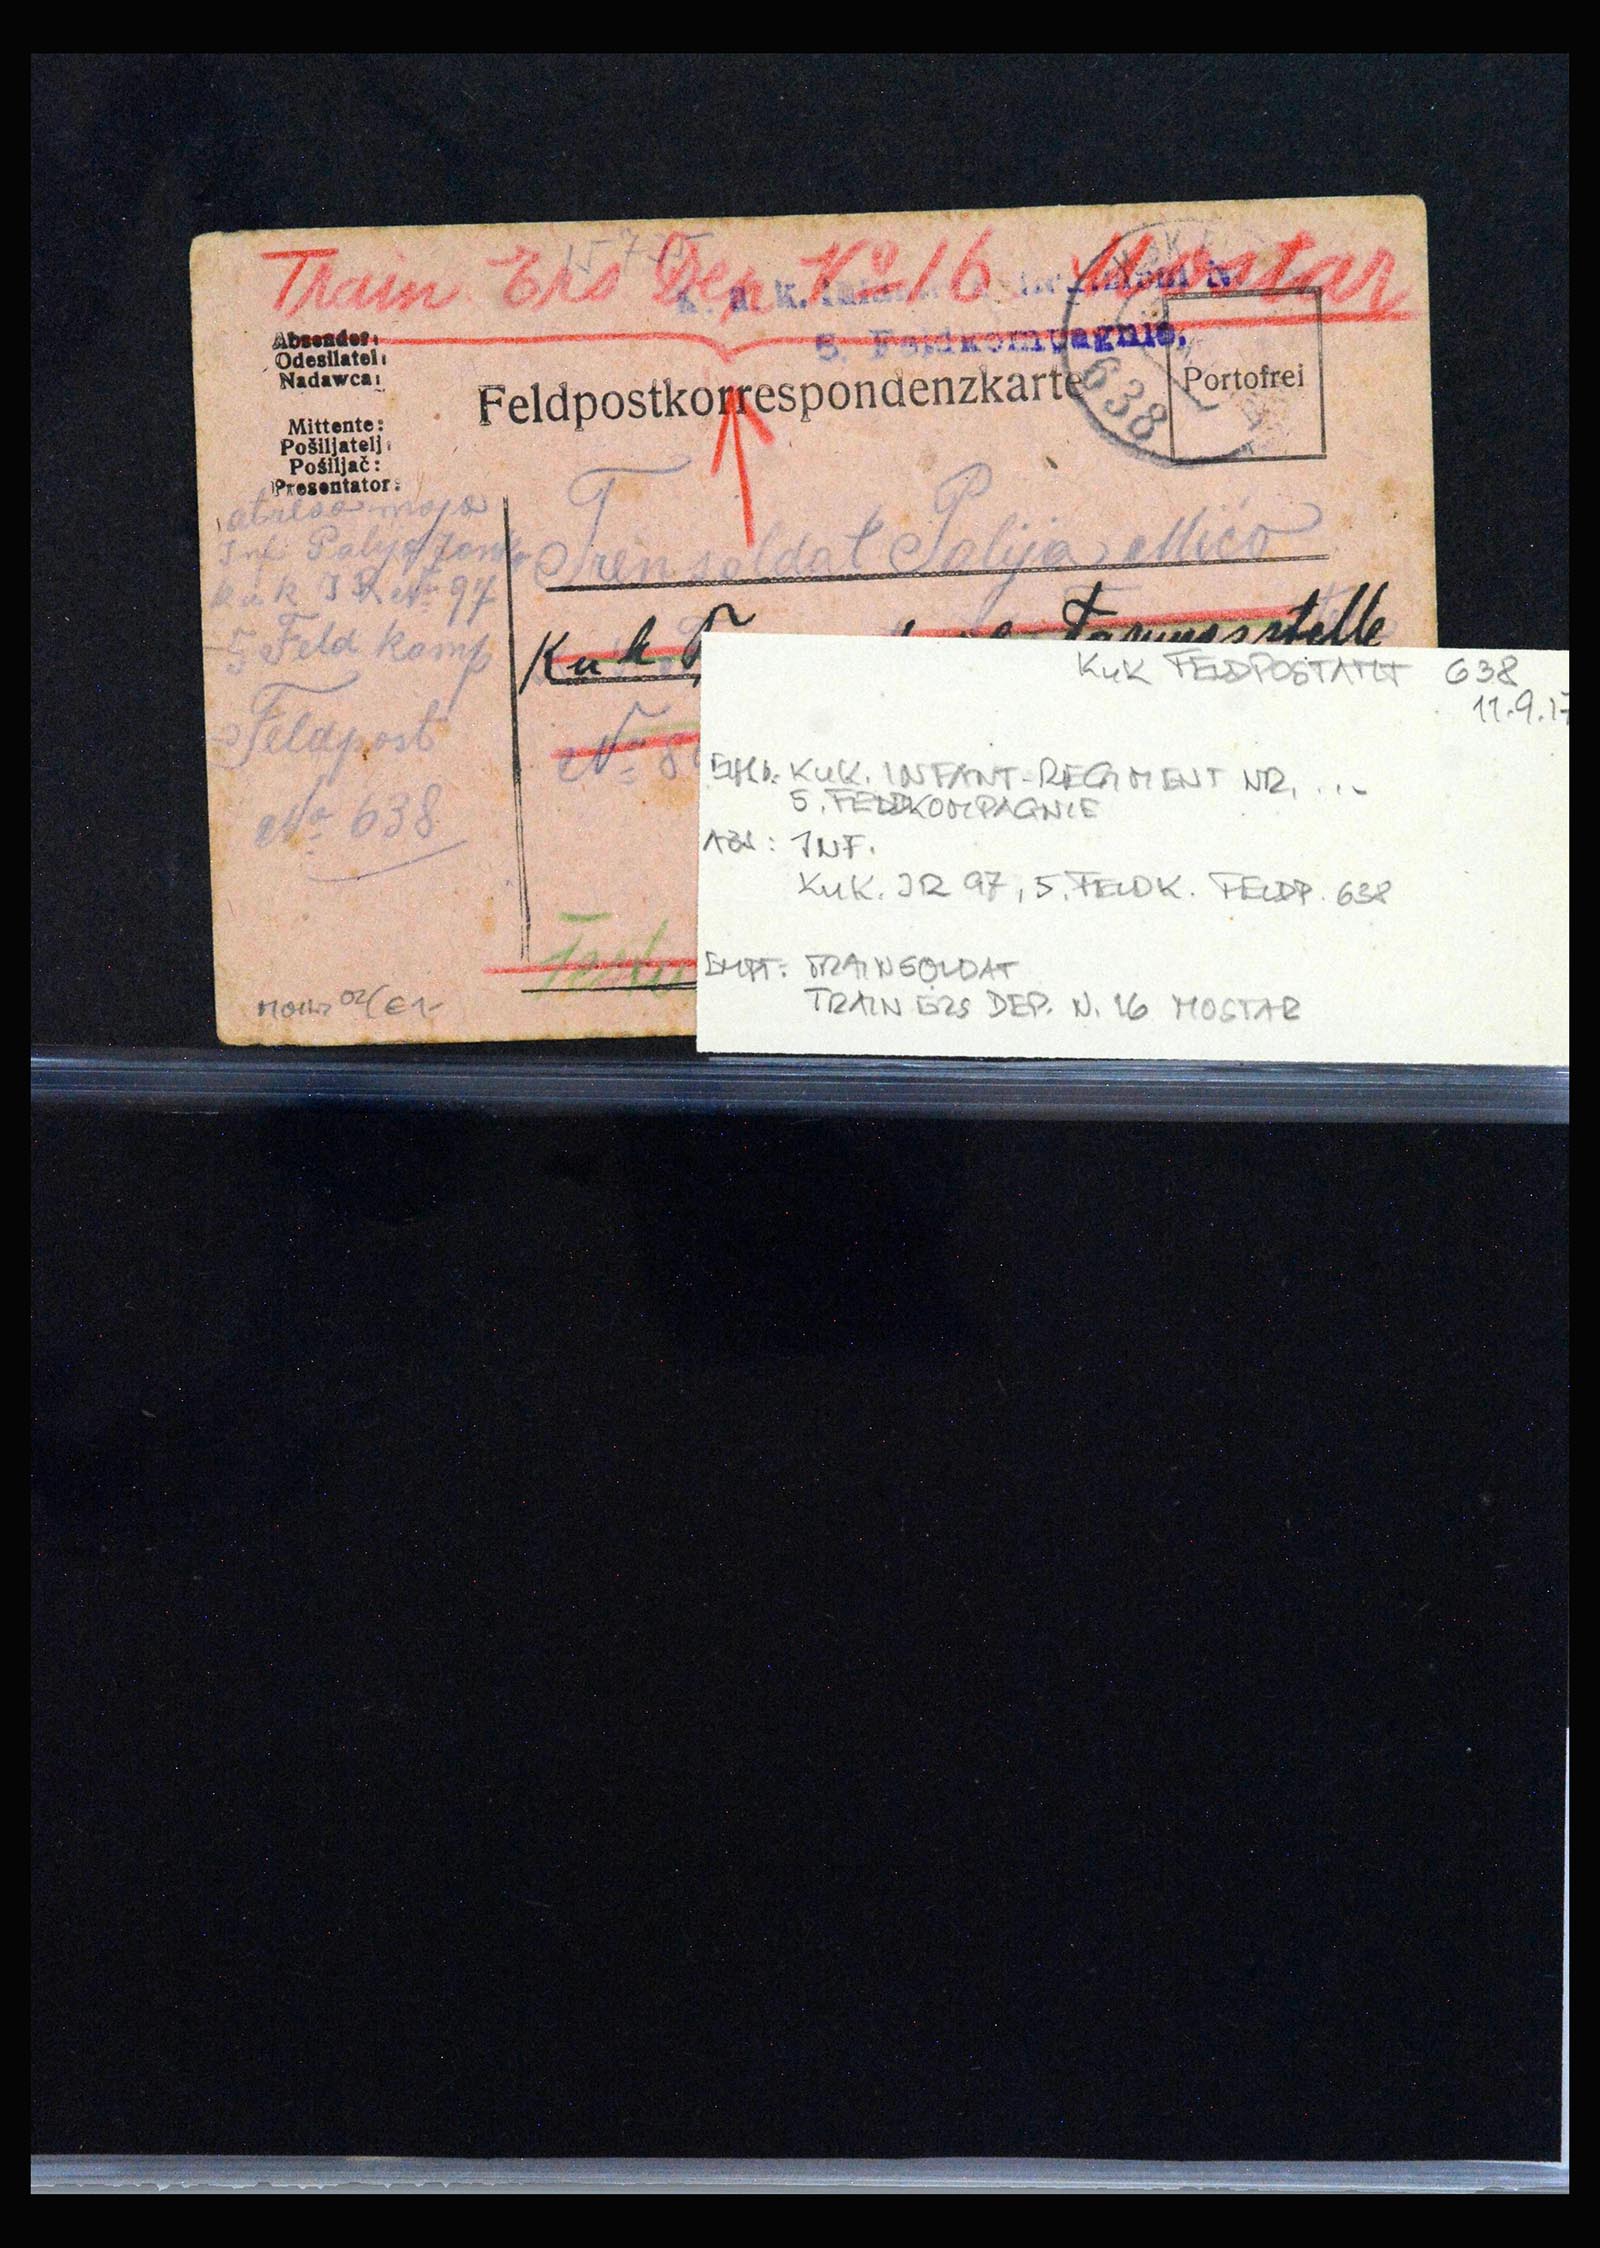 15755
Train Ers Dep No 16 Mostar
k. u. k.
5. Feldkompagnie.
638
Absender:
Odesilatel:
Nadawca:
Portofrei
Feldpostkorrespondenzkarte
Mittente:
Pošiljatelj:
Pošiljač:
Presentator:
adresa moja
Inf Palija
k u k I R No 97
5 Feld komp
Feldpost
No 638
Trensoldat Palija Mićo
K u k
No 8
KuK FELDPOSTAMT 638
11.9.17
KuK. INFANT-REGIMENT NR. ...
5. FELDKOMPAGNIE
ABS: INF.
KuK. IR 97, 5. FELDK. FELDP. 638
EMPF: TRAINSOLDAT
TRAIN ERS DEP. N. 16 MOSTAR
02/ € 1-